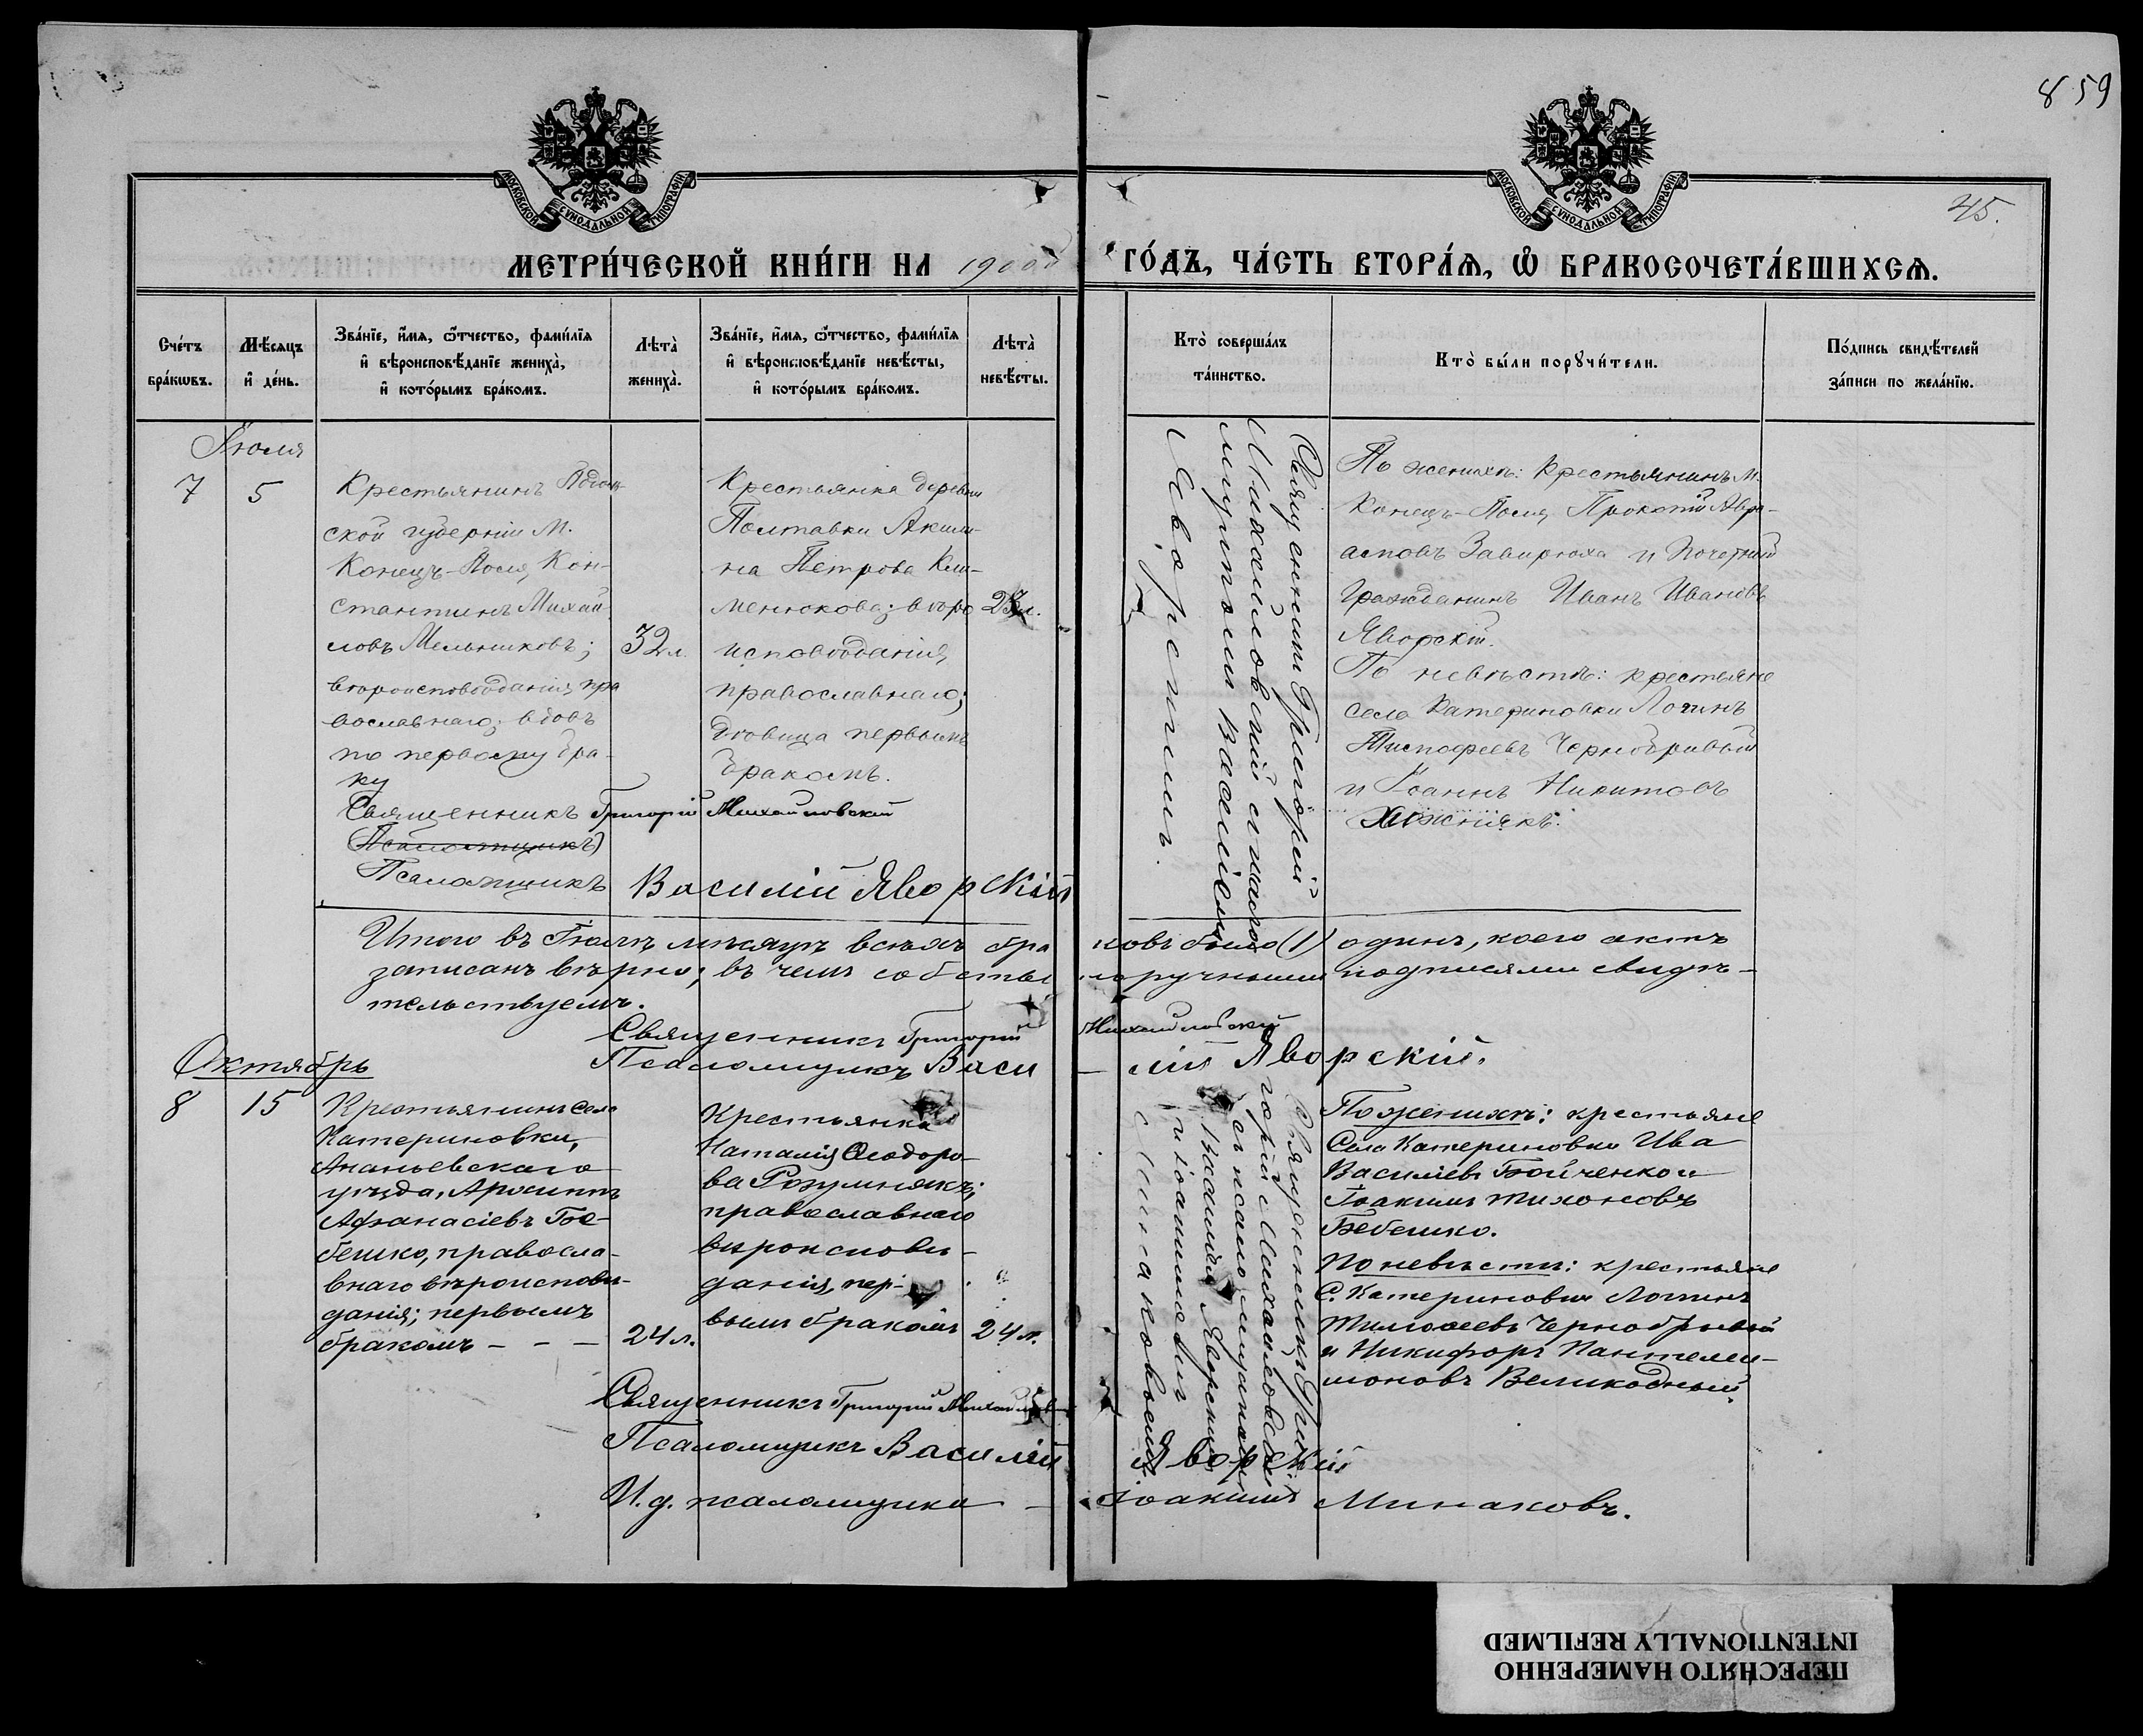 859
45.
МОСКОВСКОЙ СУНОДАЛЬНОЙ ТИПОГРАФІИ
МОСКОВСКОЙ СУНОДАЛЬНОЙ ТИПОГРАФІИ
МЕТРИ́ЧЕСКОЙ КНИ́ГИ НА 1900й ГО́ДЪ, ЧА́СТЬ ВТОРА́Ѧ, Ѽ БРАКОСОЧЕТА́ВШИХСѦ.
Сче́тъ
бра́кѡвъ.
Мѣ́сяцъ
и҆ де́нь.
Зва́нїе, и҆́мя, ѻ҆́тчество, фами́лїя
и҆ вѣроисповѣ́данїе жениха̀,
и҆ кото́рымъ бра́комъ.
Лѣта̀
жениха̀.
Зва́нїе, и҆́мя, ѻ҆́тчество, фами́лїя
и҆ вѣроисповѣ́данїе невѣ́сты,
и҆ кото́рымъ бра́комъ.
Лѣта̀
невѣ́сты.
Кто̀ соверша́лъ
та́инство.
Кто̀ бы́ли порꙋчи́тели.
По́дпись свидѣ́телей
за́писи по жела́нїю.
Іюля
7
5
Крестьянинъ
ской губерніи М.
Конецъ-Поля, Кон-
стантинъ Михай-
ловъ Мельниковъ;
вѣроисповѣданія пра
вославнаго; вдовъ
по первому бра-
ку
32 л.
Крестьянка деревни
Полтавки Акили-
на Петрова Кли-
менюкова; вѣро
исповѣданія
православнаго;
дѣвица первымъ
бракомъ.
Священникъ Григорій
Михайловскій съ псало-
мщикомъ Василіемъ
Яворскимъ.
По женихѣ: Крестьянинъ М.
Конецъ-Поля, Прокопій Авра-
амовъ Завирюха и Почетный
Гражданинъ Иванъ Ивановъ
Яворскій.
По невѣстѣ: крестьяне
села Катериновки Логинъ
Тимофеевъ Чернобривый
и Іоаннъ Никитовъ
Священникъ Григорій Михайловскій
Псаломщикъ
Псаломщикъ Василій Яворскій
Итого въ Іюлѣ мѣсяцѣ всѣхъ браковъ было (1) одинъ, коего актъ
записанъ вѣрно; въ чемъ собственноручными подписями свидѣ-
тельствуемъ.
Священникъ Григорій Михайловскій
Псаломщикъ Василій Яворскій.
Октябрь
8
15
Крестьянинъ села
Катериновки,
Ананьевскаго
уѣзда, Архиппъ
Афанасіевъ Бе-
бешко, правосла-
внаго вѣроисповѣ-
данія; первымъ
бракомъ - - -
24 л.
Крестьянка
Наталія Ѳеодоро-
ва Розумнякъ;
православнаго
вѣроисповѣ-
данія, пер-
вымъ бракомъ
24 л.
Священникъ Гри-
горій Михайловскій
съ псаломщиками
Василіемъ Яворскимъ
и Іоакимомъ
Минаковымъ
По женихѣ: крестьяне
Села Катериновки Ива
Василіевъ Бойченко и
Іоакимъ Тихоновъ
Бебешко.
По невѣстѣ: крестьяне
С. Катериновки Логинъ
Тимоѳеевъ Чернобривый
и Никифоръ Пантелеи-
моновъ Великодный.
Священникъ Григорій Михайлов
Псаломщикъ Василій Яворскій
И. д. псаломщика Іоакимъ Минаковъ.
ПЕРЕСНЯТО НАМЕРЕННО
INTENTIONALLY REFILMED